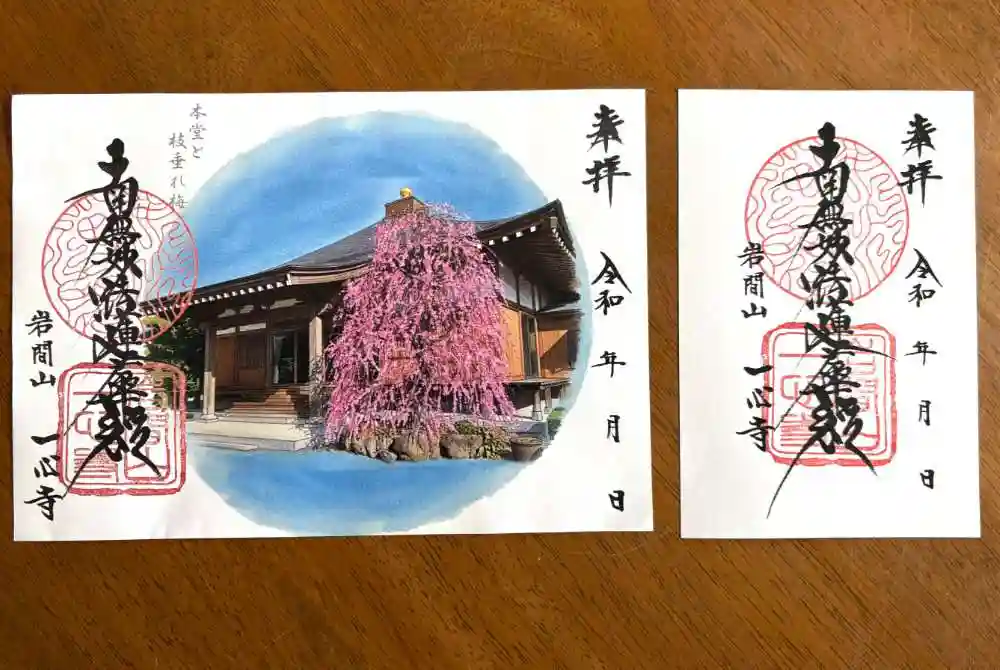 奉拝
令和 年 月 日
本堂と
枝垂れ梅
南無妙法蓮華経
岩間山
一心寺
奉拝
令和 年 月 日
南無妙法蓮華経
岩間山
一心寺